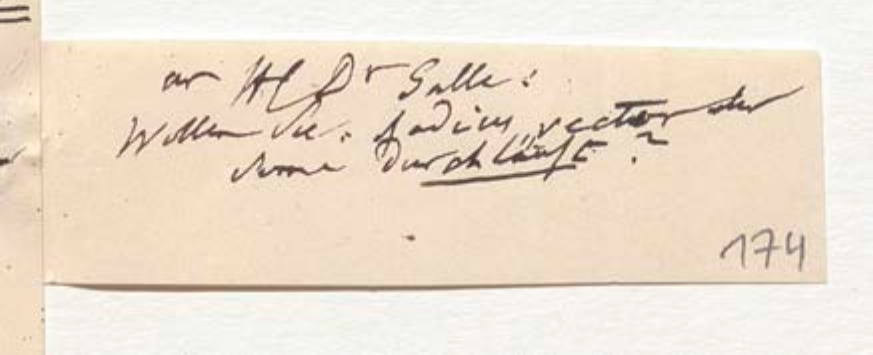 an H Dr Galle:
Wollen Sie: Radius vector der
Sonne durchläuft?
174